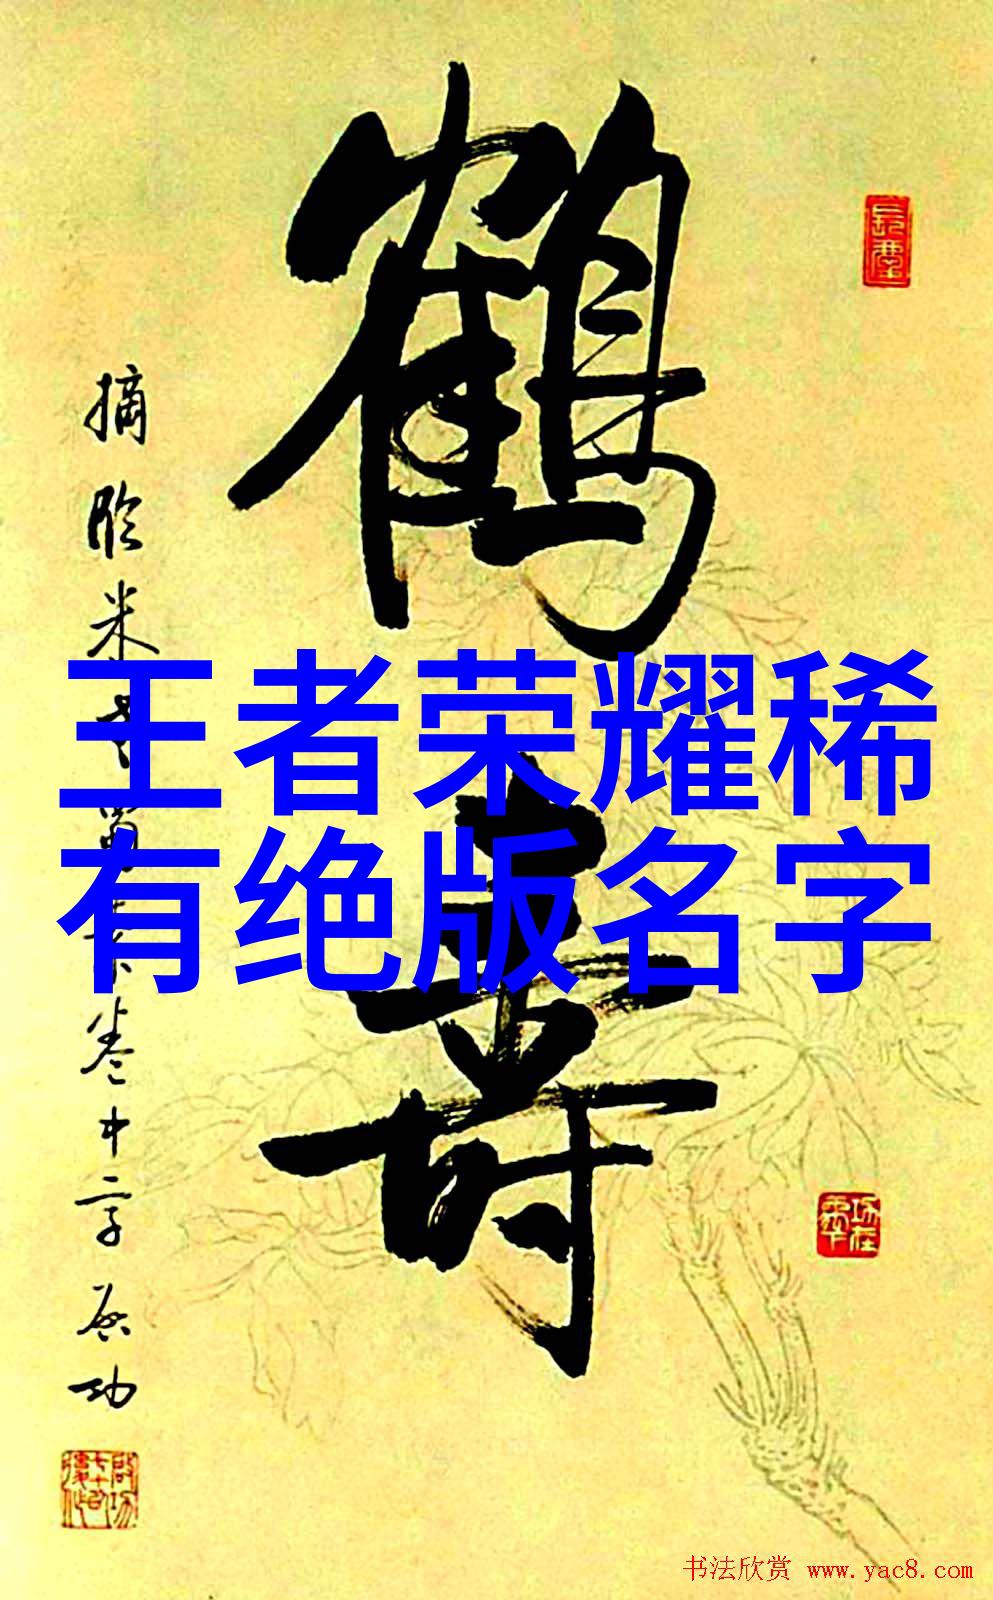 鹤寿
摘临米
卷中字启功
王者荣耀稀
有绝版名字
书法欣赏 www.yac8.com